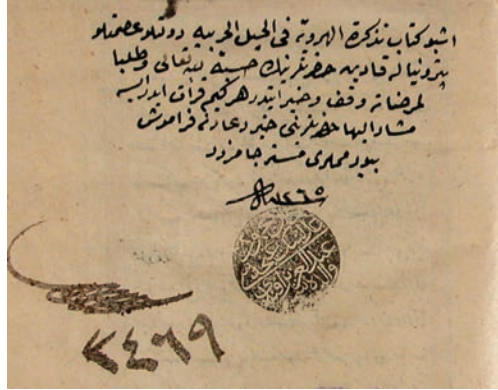 اشبو كتاب تذكرة الهروية فى الحيل الحربيه دولتلو عصمتلو
پرتونياله قادين حضرتلرينك حسبة لله تعالى وطلبا
لمرضاته وقف وخيراتيدر هر كيم قرائت ايدر ايسه
مشار اليها حضرتلرينى خير دعادن فراموش
بيورمملرى
١٢٦٥
٢٤٦٩